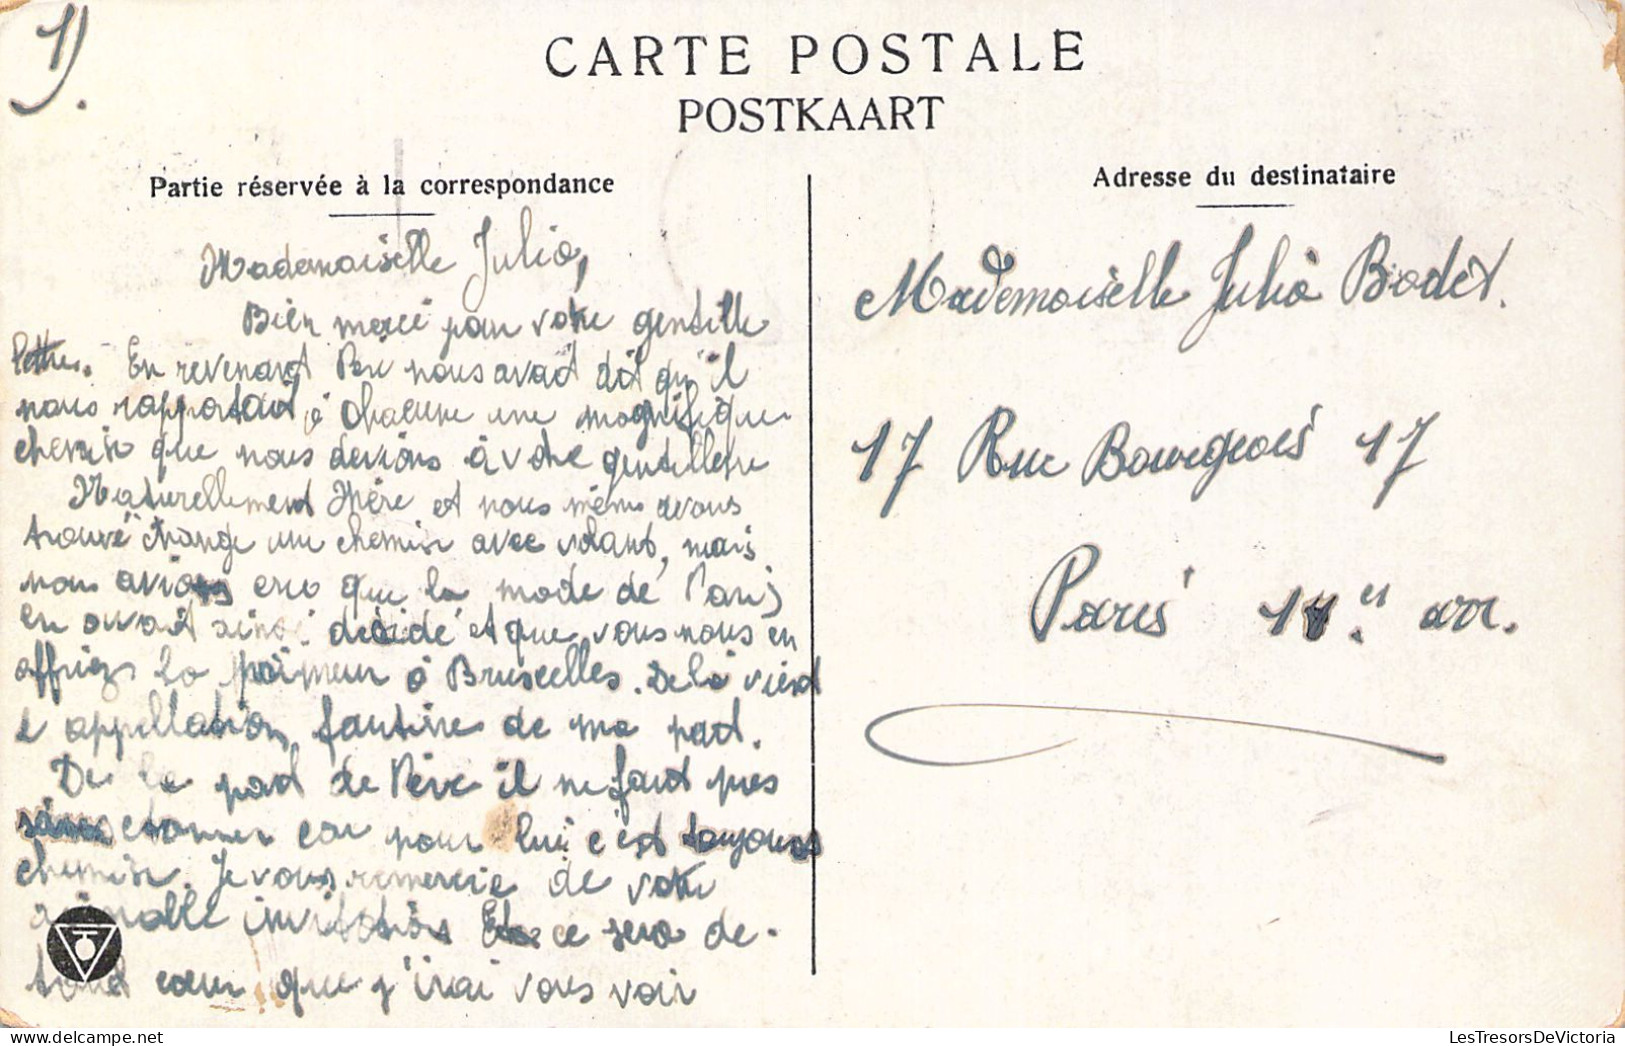 1).
CARTE POSTALE
POSTKAART
Partie réservée à la correspondance
Mademoiselle Julia,
Bien merci pour votre gentille
lettre. En revenant Père nous avait dit qu'il
nous rapportait à chacune une magnifique
chemise que nous devions à votre gentillesse
Naturellement Mère et nous même avons
trouvé étrange une chemise avec volant, mais
nous avions cru que la mode de Paris
en avait ainsi décidé et que vous nous en
offriez la primeur à Bruxelles. De là vient
l'appellation fautive de ma part.
De la part de Père il ne faut pas
s'en étonner car pour lui c'est toujours
chemise. Je vous remercie de votre
aimable invitation et ce sera de
tout cœur que j'irai vous voir
Adresse du destinataire
Mademoiselle Julia Bodet.
17 Rue Bourgeois 17
Paris arr.
LesTresorsDeVictoria.com